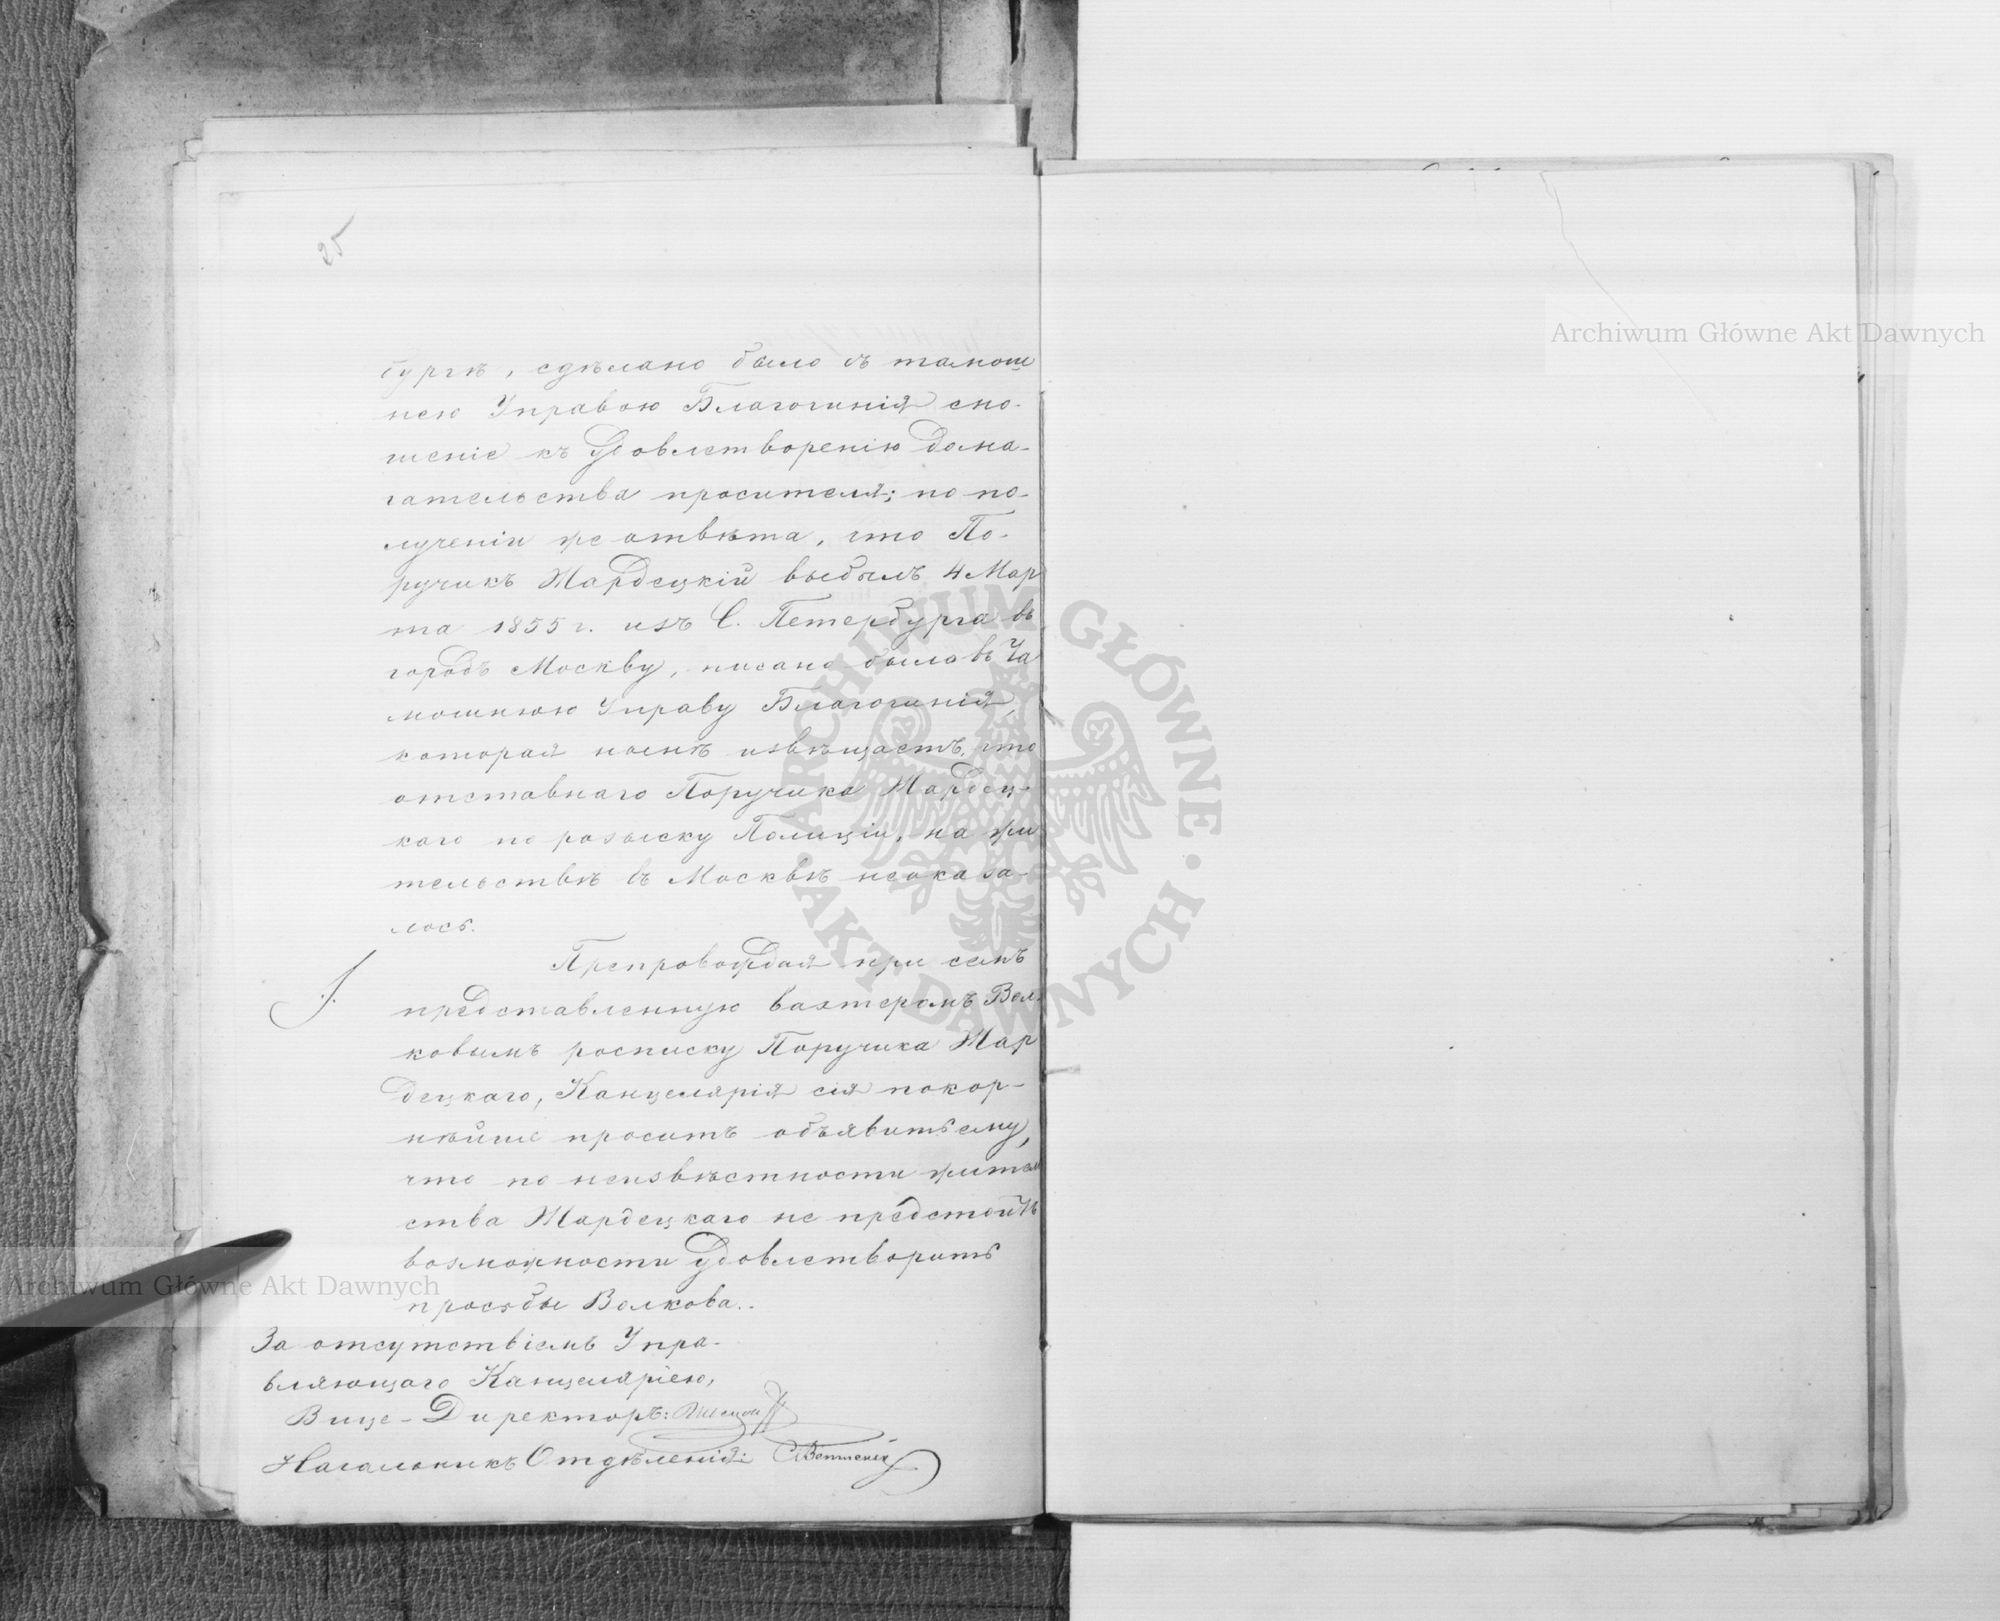 25
бургѣ, сдѣлано было съ тамош
нею Управою Благочинія сно-
шеніе къ удовлетворенію дома-
гательства просителя; по по-
лученіи же отвѣта, что По-
ручикъ Жардецкій выбылъ 4 Мар
та 1855 г. изъ С. Петербурга въ
городъ Москву, писано было въ та
мошнюю Управу Благочинія,
которая нынѣ извѣщаетъ, что
отставнаго Поручика Жардец-
каго по розыску Полиціи, на жи
тельствѣ въ Москвѣ неоказа-
лось.
Препровождая при семъ
представленную вахтеромъ Вол
ковымъ росписку Поручика Жар
децкаго, Канцелярія сія покор-
нѣйше проситъ объявить ему,
что по неизвѣстности житель
ства Жардецкаго не предстоитъ
возможности удовлетворить
просьбы Волкова.
За отсутствіемъ Упра-
вляющаго Канцеляріею,
Вице-Директоръ:
Начальникъ Отдѣленія:
Archiwum Główne Akt Dawnych
Archiwum Główne Akt Dawnych
ARCHIWUM GŁÓWNE · AKT DAWNYCH ·